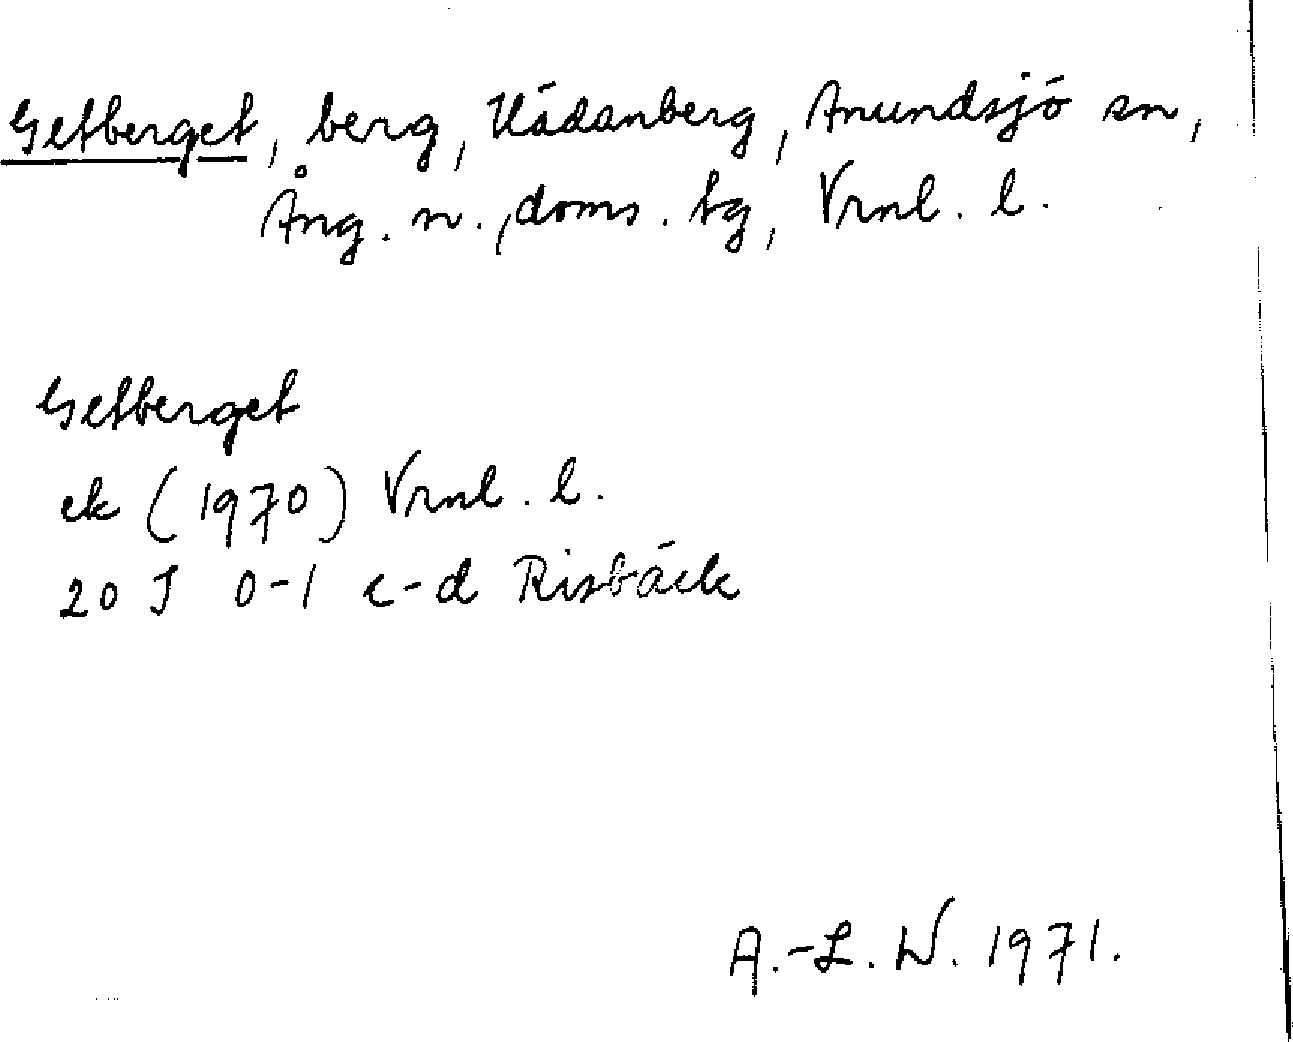 Getberget, berg, Kädanberg, Anundsjö sn,
Ång. n., doms. bg, Vrnl. l.
Getberget
ek (1970) Vrnl. l.
20 J 0-1 c-d Risbäck
A.-L. W. 1971.